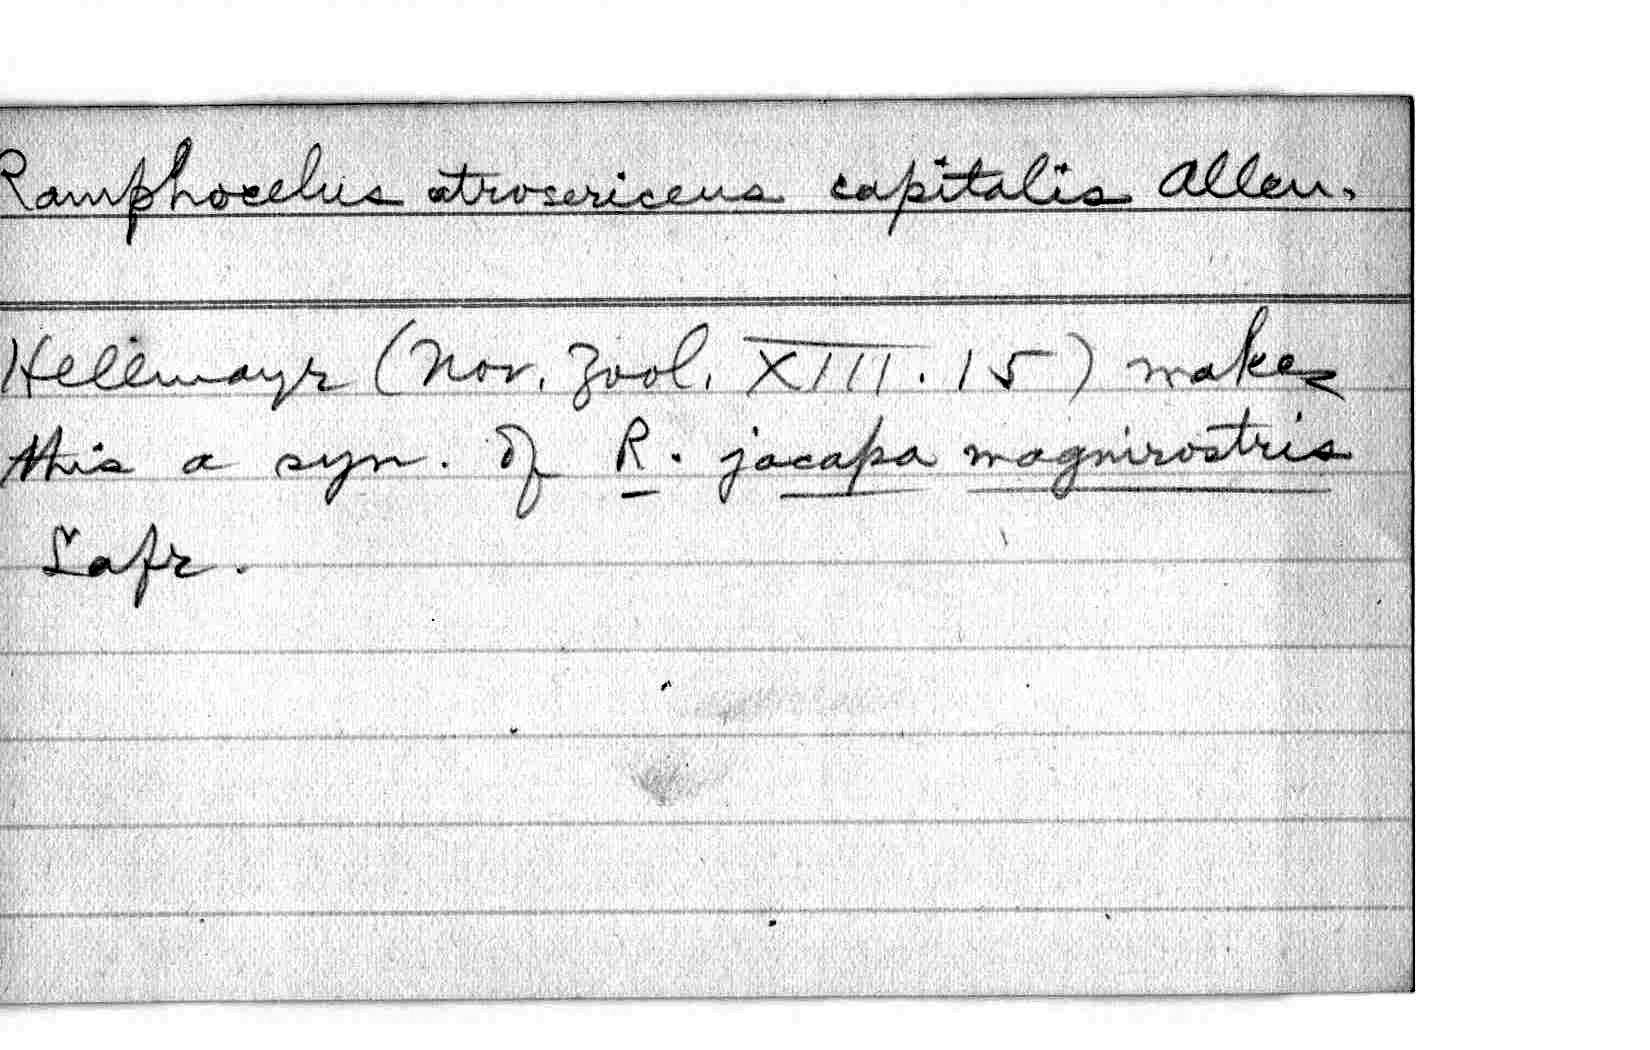 Ramphocelus atrosericeus capitalis Allen.
Hellmayr (Nov. Zool. XIII. 15) makes
this a syn. of R. jacapa magnirostris
Lafr.